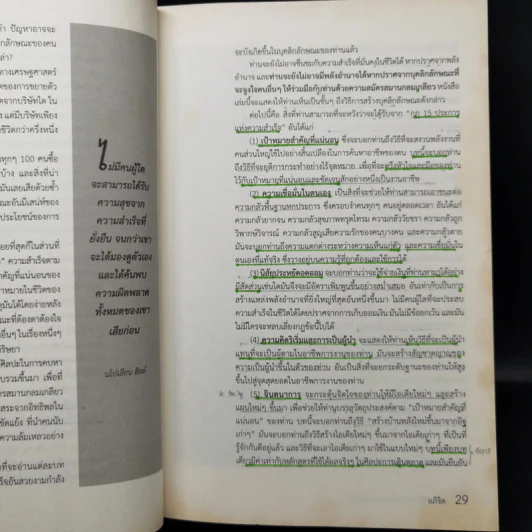 า ปัญหาอาจจะ
ักลักษณะของคน
ล่า?
ทางเศรษฐศาสตร์
ของการขยายตัว
ดจากบริษัทใด ใน
แต่มีบริษัทเพียง
ชีวิตกว่าครึ่งหนึ่ง
ทุกๆ 100 คนซื้อ
บ้าง และสิ่งที่น่า
มันเลยเสียด้วยซ้ำ
ณะอันมีเสน่ห์ของ
ประโยชน์ของการ
อยที่สุดก็ในส่วนที่
ความสำเร็จตาม
คัญที่แน่นอนของ
าหมายในชีวิตของ
มันได้โดยง่ายหลัง
ณะที่ต้องตาต้องใจ
อื่นๆ ในเรื่องหนึ่งๆ
ริษยา
ศิลปะในการคบหา
บรวมขึ้นมา เพื่อที่
การสมานกลมเกลียว
สระจากอิทธิพลใน
ขัดแย้ง ที่นำคนนับ
ความล้มเหลวอย่าง
ที่จะอ่านแต่ละบท
ร็จอันสวยงามกำลัง
ไม่มีคนผู้ใด
จะสามารถได้รับ
ความสุขจาก
ความสำเร็จที่
ยั่งยืน จนกว่าเขา
จะได้มองดูตัวเอง
และได้ค้นพบ
ความผิดพลาด
ทั้งหมดของเขา
เสียก่อน
นโปเลียน ฮิลล์
จะบังเกิดขึ้นในบุคลิกลักษณะของท่านแล้ว
ท่านจะยังไม่อาจชื่นชมกับความสำเร็จที่มั่นคงในชีวิตได้ หากปราศจากพลัง
อำนาจ และท่านจะยังไม่อาจมีพลังอำนาจได้หากปราศจากบุคลิกลักษณะที่
จะจูงใจคนอื่นๆ ให้ร่วมมือกับท่านด้วยความสมัครสมานกลมเกลียว หนังสือ
เล่มนี้จะแสดงให้ท่านเห็นเป็นขั้นๆ ถึงวิธีการสร้างบุคลิกลักษณะดังกล่าว
ต่อไปนี้คือ สิ่งที่ท่านสามารถที่จะหวังว่าจะได้รับจาก “กฎ 15 ประการ
แห่งความสำเร็จ” อันได้แก่
(1) เป้าหมายสำคัญที่แน่นอน ซึ่งจะบอกท่านถึงวิธีที่จะสงวนพลังงานที่
คนส่วนใหญ่ใช้ไปอย่างสิ้นเปลืองในการค้นหาอาชีพของตน บทนี้จะบอกท่าน
ถึงวิธีที่จะยุติการกระทำอย่างไร้จุดหมาย เพื่อที่จะตรึงหัวใจและมือของท่าน
ไว้กับเป้าหมายที่แน่นอนและชัดเจนสักอย่างหนึ่งเป็นงานอาชีพ
(2) ความเชื่อมั่นในตนเอง เป็นสิ่งที่จะช่วยให้ท่านสามารถเอาชนะต่อ
ความกลัวพื้นฐานหกประการ ซึ่งครอบงำคนทุกๆ คนอยู่ตลอดเวลา อันได้แก่
ความกลัวยากจน ความกลัวสุขภาพทรุดโทรม ความกลัววัยชรา ความกลัวถูก
วิพากษ์วิจารณ์ ความกลัวสูญเสียความรักของคนบางคน และความกลัวตาย
มันจะบอกท่านถึงความแตกต่างระหว่างความเห็นแก่ตัว และความเชื่อมั่นใน
ตนเองที่แท้จริง ซึ่งวางอยู่บนความรู้ที่ถูกต้องและใช้การได้
(3) นิสัยประหยัดอดออม จะบอกท่านว่าจะใช้จ่ายเงินที่ท่านหามาได้อย่าง
มีสัดส่วนเช่นใดมันจึงจะมีอัตราเพิ่มพูนขึ้นอย่างสม่ำเสมอ อันเท่ากับเป็นการ
สร้างแหล่งพลังอำนาจที่ยิ่งใหญ่ที่สุดอันหนึ่งขึ้นมา ไม่มีคนผู้ใดที่จะประสบ
ความสำเร็จในชีวิตได้โดยปราศจากการเก็บออมเงิน มันไม่มีข้อยกเว้น และมัน
ไม่มีใครจะหลบเลี่ยงกฎข้อนี้ไปได้
(4) ความคิดริเริ่มและการเป็นผู้นำ จะแสดงให้ท่านเห็นวิธีที่จะเป็นผู้นำ
แทนที่จะเป็นผู้ตามในอาชีพการงานของท่าน มันจะสร้างสัญชาตญาณของ
ความเป็นผู้นำขึ้นในตัวของท่าน อันเป็นสิ่งที่จะยกระดับฐานะของท่านให้สูง
ขึ้นไปสู่จุดสุดยอดในอาชีพการงานของท่าน
(5) จินตนาการ จะกระตุ้นจิตใจของท่านให้มีไอเดียใหม่ๆ และสร้าง
แผนใหม่ๆ ขึ้นมา เพื่อช่วยให้ท่านบรรลุวัตถุประสงค์ตาม “เป้าหมายสำคัญที่
แน่นอน” ของท่าน บทนี้จะบอกท่านถึงวิธี “สร้างบ้านหลังใหม่ขึ้นมาจากอิฐ
เก่าๆ” มันจะบอกท่านถึงวิธีสร้างไอเดียใหม่ๆ ขึ้นมาจากไอเดียเก่าๆ ที่เป็นที่
รู้จักกันดีอยู่แล้ว และวิธีที่จะเอาไอเดียเก่าๆ มาใช้ในแบบใหม่ๆ บทนี้เพียงบท
เดียวมีค่าเท่ากับหลักสูตรที่ใช้ได้ผลจริงๆ ในศิลปะการเดินตลาด และมันยืนยัน
อภิจิต 29